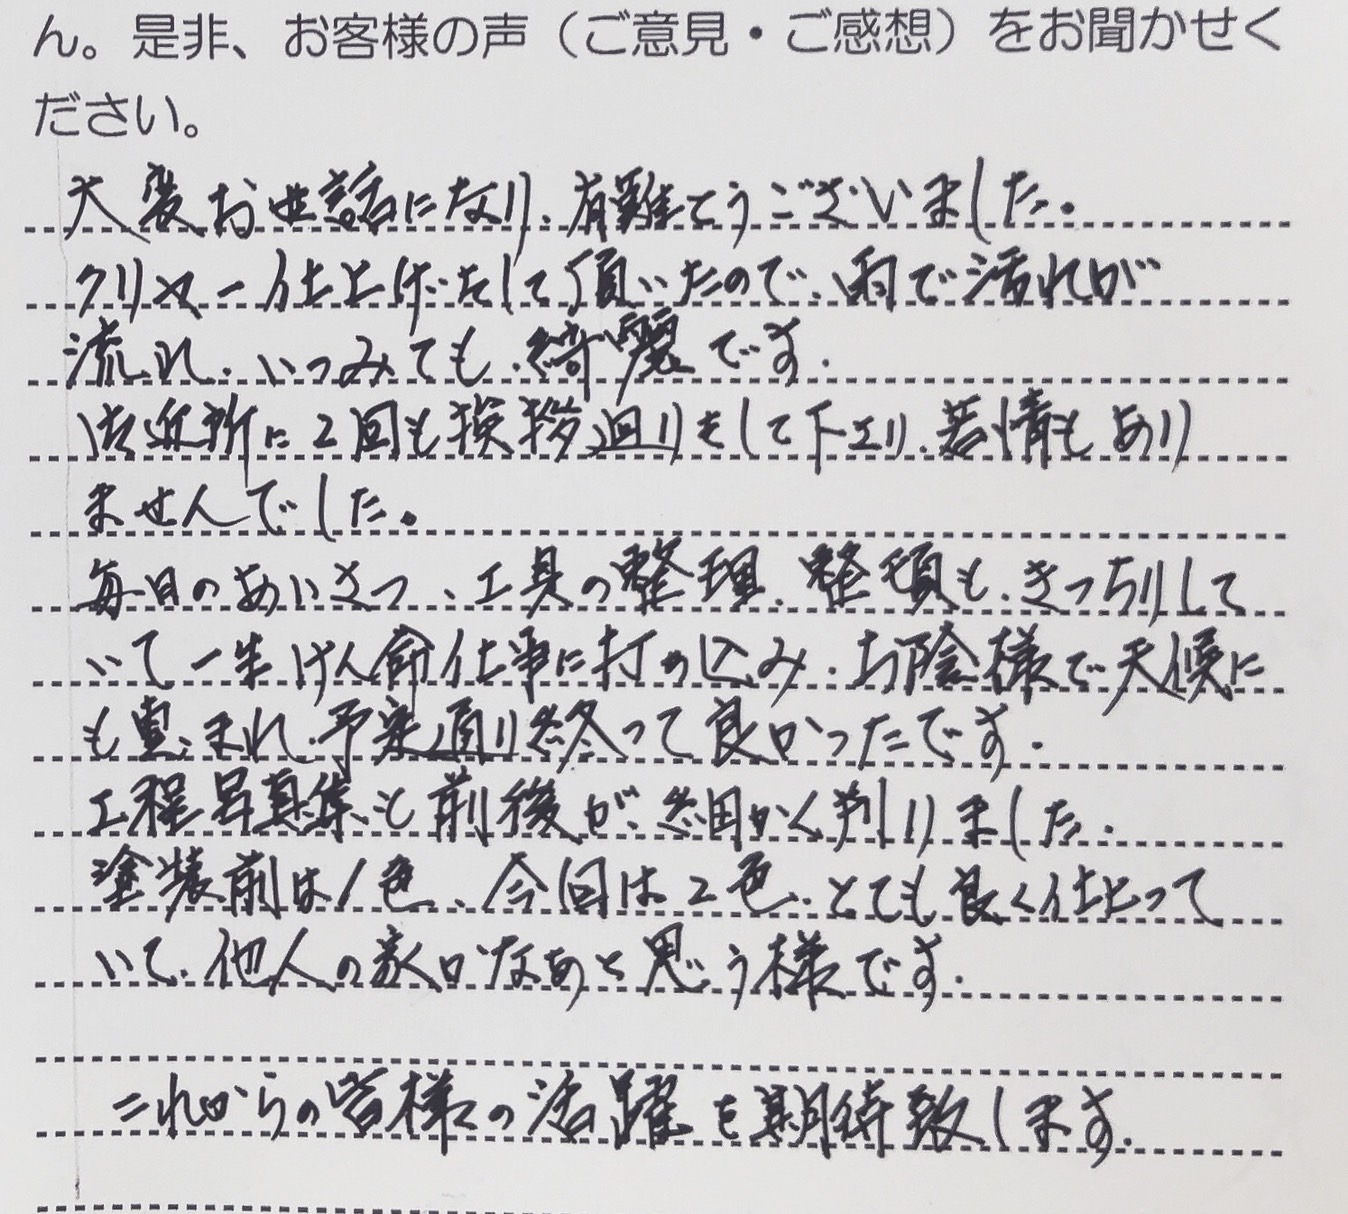 ん。是非、お客様の声（ご意見・ご感想）をお聞かせく
ださい。
大変お世話になり、有難とうございました。
クリヤー仕上げをして頂いたので、雨で汚れが
流れ、いつみても、綺麗です。
御近所に2回も挨拶廻りをして下さり、苦情もあり
ませんでした。
毎日のあいさつ、工具の整理、整頓も、きっちりして
いて一生けん命仕事に打ち込み、お陰様で天候に
も恵まれ、予定通り終って良かったです。
工程写真集も前後が、細かく判りました。
塗装前は1色、今回は2色、とても良く仕上って
いて、他人の家かなあと思う様です。
これからの皆様の活躍を期待致します。